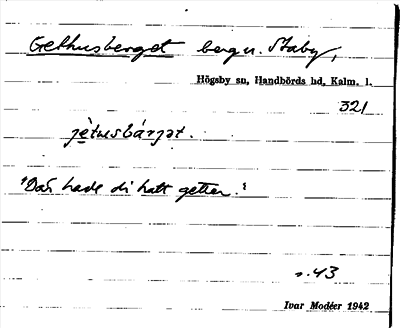 Gethusberget berg v. Staby,
Högsby sn, Handbörds hd, Kalm. l.
321
jètusbárjət.
"Där hade di hatt getter."
s. 43
Ivar Modéer 1942